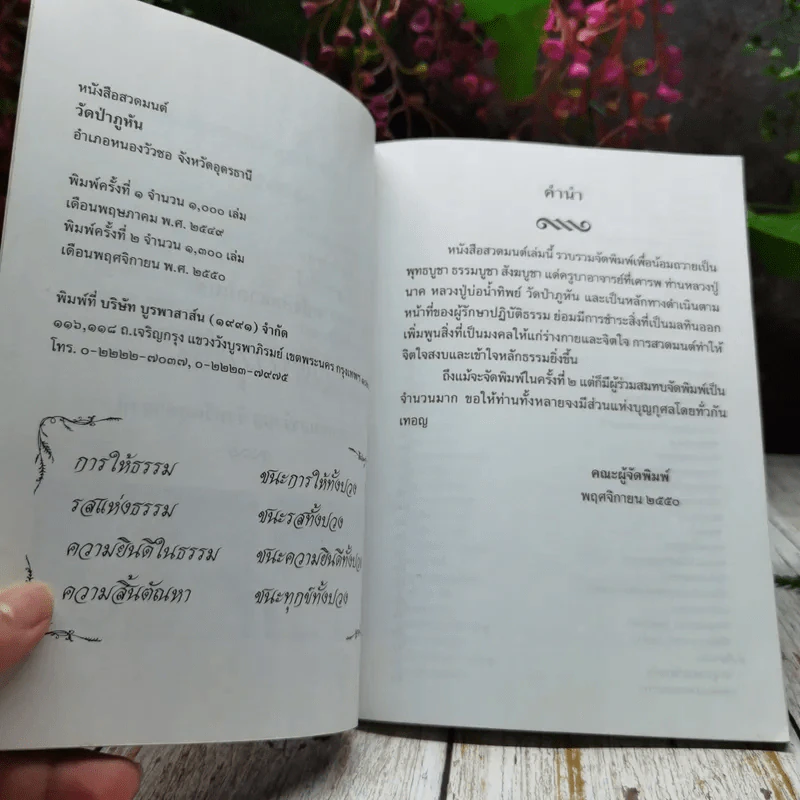 หนังสือสวดมนต์
วัดป่าภูหัน
อำเภอหนองวัวซอ จังหวัดอุดรธานี
พิมพ์ครั้งที่ ๑ จำนวน ๑,๐๐๐ เล่ม
เดือนพฤษภาคม พ.ศ. ๒๕๔๙
พิมพ์ครั้งที่ ๒ จำนวน ๑,๓๐๐ เล่ม
เดือนพฤศจิกายน พ.ศ. ๒๕๕๐
พิมพ์ที่ บริษัท บูรพาสาส์น (๑๙๙๑) จำกัด
๑๑๖,๑๑๘ ถ.เจริญกรุง แขวงวังบูรพาภิรมย์ เขตพระนคร กรุงเทพฯ
โทร. ๐-๒๒๒๒-๗๐๓๗, ๐-๒๒๒๓-๗๙๗๕
การให้ธรรม ชนะการให้ทั้งปวง
รสแห่งธรรม ชนะรสทั้งปวง
ความยินดีในธรรม ชนะความยินดีทั้งปวง
ความสิ้นตัณหา ชนะทุกข์ทั้งปวง
คำนำ
หนังสือสวดมนต์เล่มนี้ รวบรวมจัดพิมพ์เพื่อน้อมถวายเป็น
พุทธบูชา ธรรมบูชา สังฆบูชา แด่ครูบาอาจารย์ที่เคารพ ท่านหลวงปู่
นาค หลวงปู่บ่อน้ำทิพย์ วัดป่าภูหัน และเป็นหลักทางดำเนินตาม
หน้าที่ของผู้รักษาปฏิบัติธรรม ย่อมมีการชำระสิ่งที่เป็นมลทินออก
เพิ่มพูนสิ่งที่เป็นมงคลให้แก่ร่างกายและจิตใจ การสวดมนต์ทำให้
จิตใจสงบและเข้าใจหลักธรรมยิ่งขึ้น
ถึงแม้จะจัดพิมพ์ในครั้งที่ ๒ แต่ก็มีผู้ร่วมสมทบจัดพิมพ์เป็น
จำนวนมาก ขอให้ท่านทั้งหลายจงมีส่วนแห่งบุญกุศลโดยทั่วกัน
เทอญ
คณะผู้จัดพิมพ์
พฤศจิกายน ๒๕๕๐